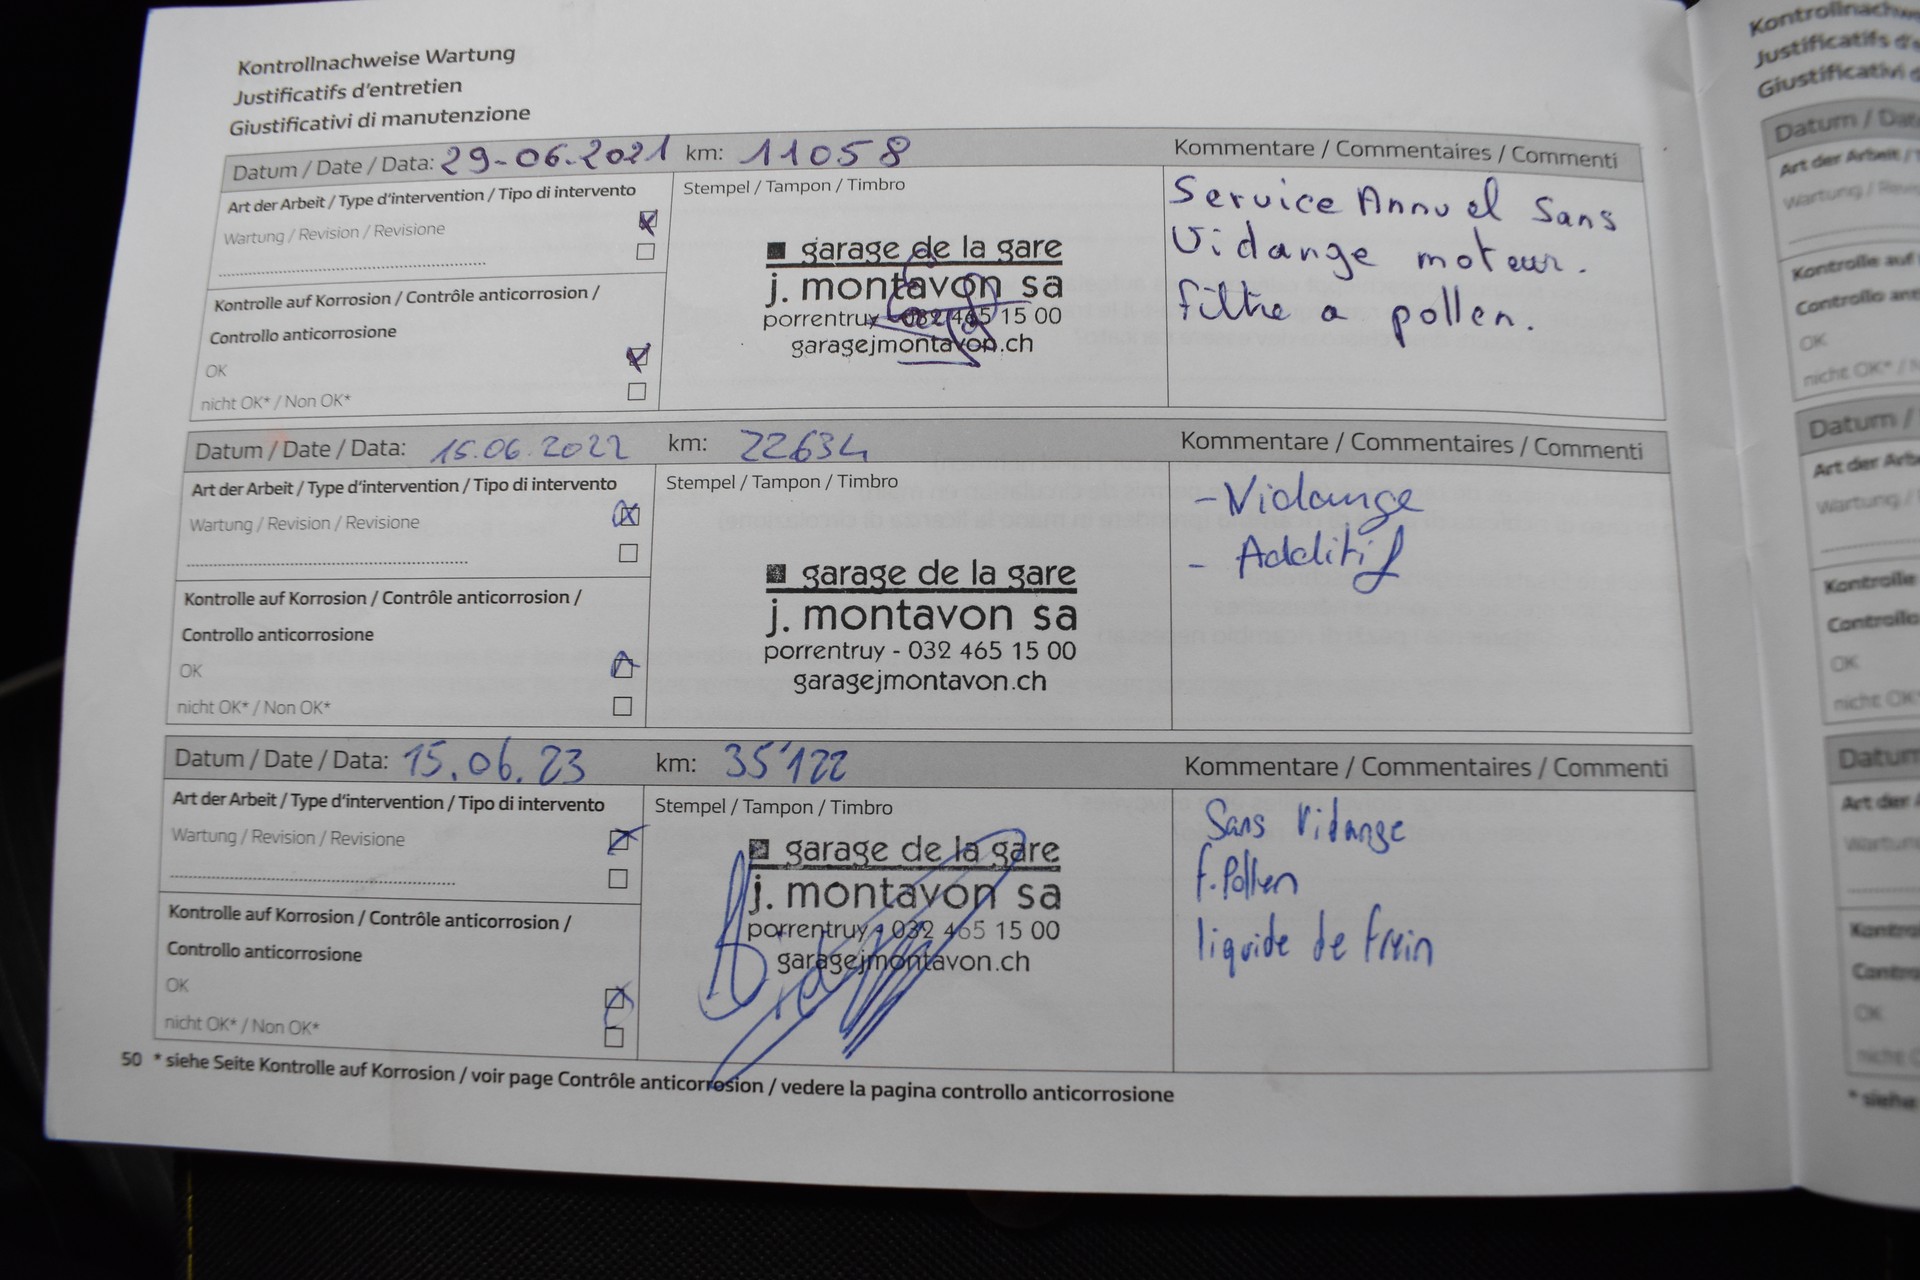 Kontrollnachweise Wartung
Justificatifs d'entretien
Giustificativi di manutenzione
Datum / Date / Data: 29-06.2021 km: 11058 Kommentare / Commentaires / Commenti
Art der Arbeit / Type d'intervention / Tipo di intervento
Wartung / Revision / Revisione
Kontrolle auf Korrosion / Contrôle anticorrosion /
Controllo anticorrosione
OK
nicht OK* / Non OK*
Stempel / Tampon / Timbro
garage de la gare
j. montavon sa
porrentruy - 032 465 15 00
garagejmontavon.ch
Service Annuel Sans
Vidange moteur.
filtre a pollen.
Datum / Date / Data: 15.06.2022 km: 22634 Kommentare / Commentaires / Commenti
Art der Arbeit / Type d'intervention / Tipo di intervento
Wartung / Revision / Revisione
Kontrolle auf Korrosion / Contrôle anticorrosion /
Controllo anticorrosione
OK
nicht OK* / Non OK*
Stempel / Tampon / Timbro
garage de la gare
j. montavon sa
porrentruy - 032 465 15 00
garagejmontavon.ch
- Vidange
- Additif
Datum / Date / Data: 15.06.23 km: 35'122 Kommentare / Commentaires / Commenti
Art der Arbeit / Type d'intervention / Tipo di intervento
Wartung / Revision / Revisione
Kontrolle auf Korrosion / Contrôle anticorrosion /
Controllo anticorrosione
OK
nicht OK* / Non OK*
Stempel / Tampon / Timbro
garage de la gare
j. montavon sa
porrentruy - 032 465 15 00
garagejmontavon.ch
Sans Vidange
F. Pollen
liquide de frein
50 * siehe Seite Kontrolle auf Korrosion / voir page Contrôle anticorrosion / vedere la pagina controllo anticorrosione
Justificatifs
Giustificativi
Datum /
Art der Arbeit /
Wartung /
Kontrolle auf
Controllo
OK
nicht OK* /
Datum /
Art der
Wartung /
Kontrolle
Controllo
OK
nicht OK*
Datum
Art der
OK
* siehe